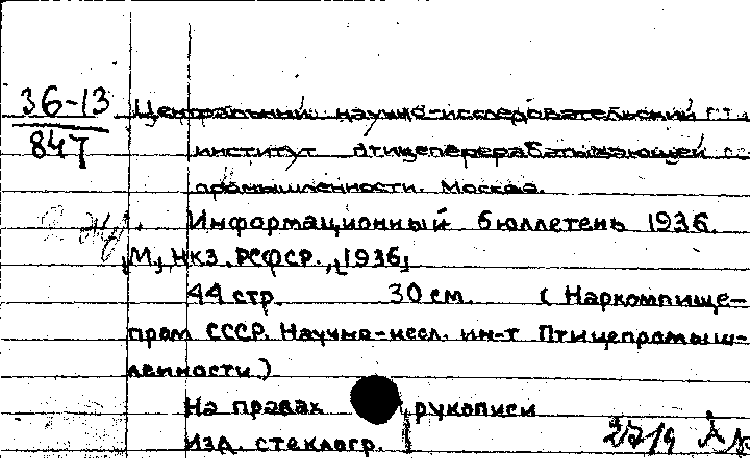 36-13
847
Центральный научно-исследовательский
институт птицеперерабатывающей
промышленности. Москва.
Информационный бюллетень 1936.
М, НКЗ. РСФСР., 1936,
44 стр. 30 см. (Наркомпище-
пром СССР. Научно-иссл. ин-т Птицепромыш-
ленности)
На правах рукописи
изд. стеклогр.